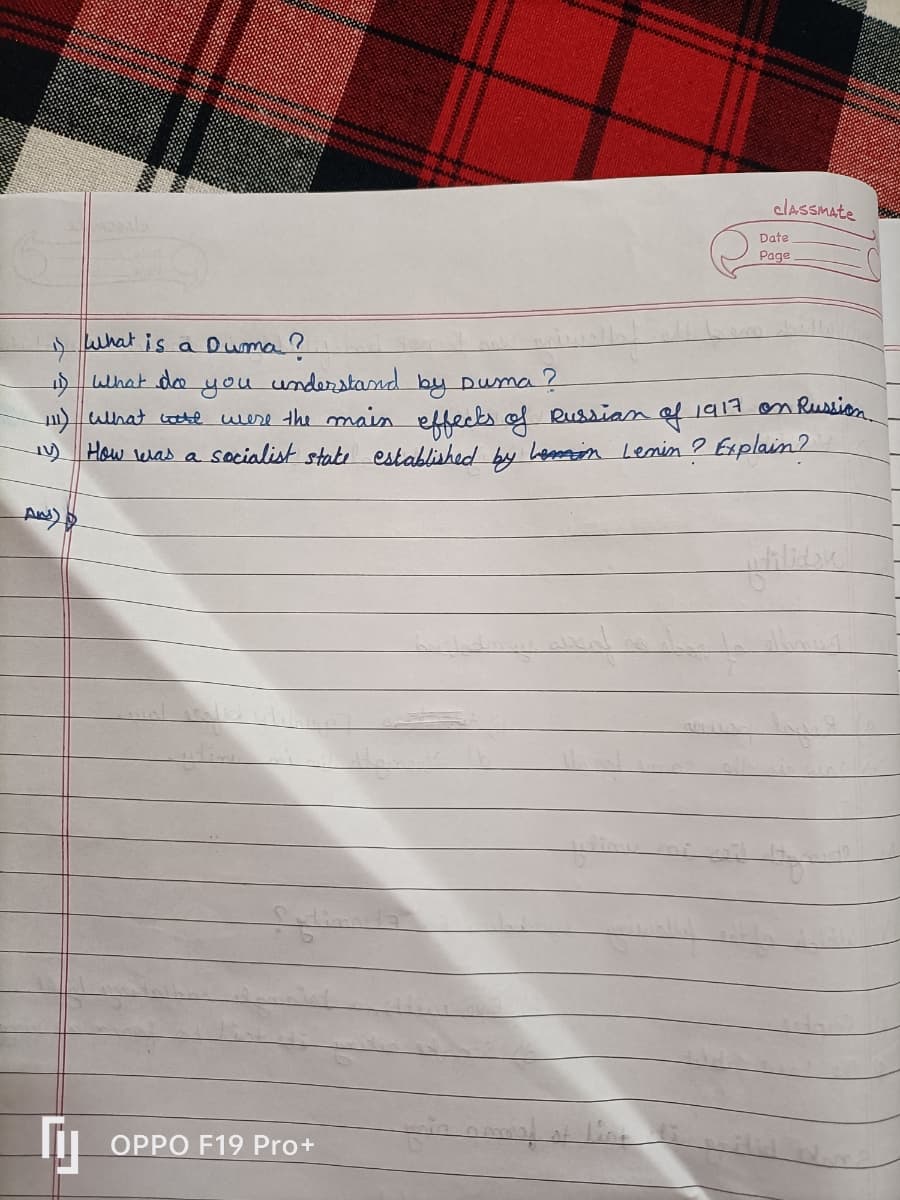 classmate
Date
Page
i) What is a Duma?
ii) What do you understand by Duma?
iii) What were the main effects of Russian of 1917 on Russion.
iv) How was a socialist state established by Lenin? Explain?
Ans)
OPPO F19 Pro+